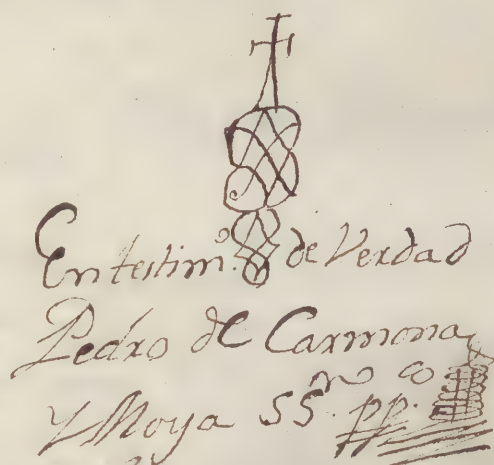 En testim.o de Verdad
Pedro de Carmona
Y Moya SS.no pp.co